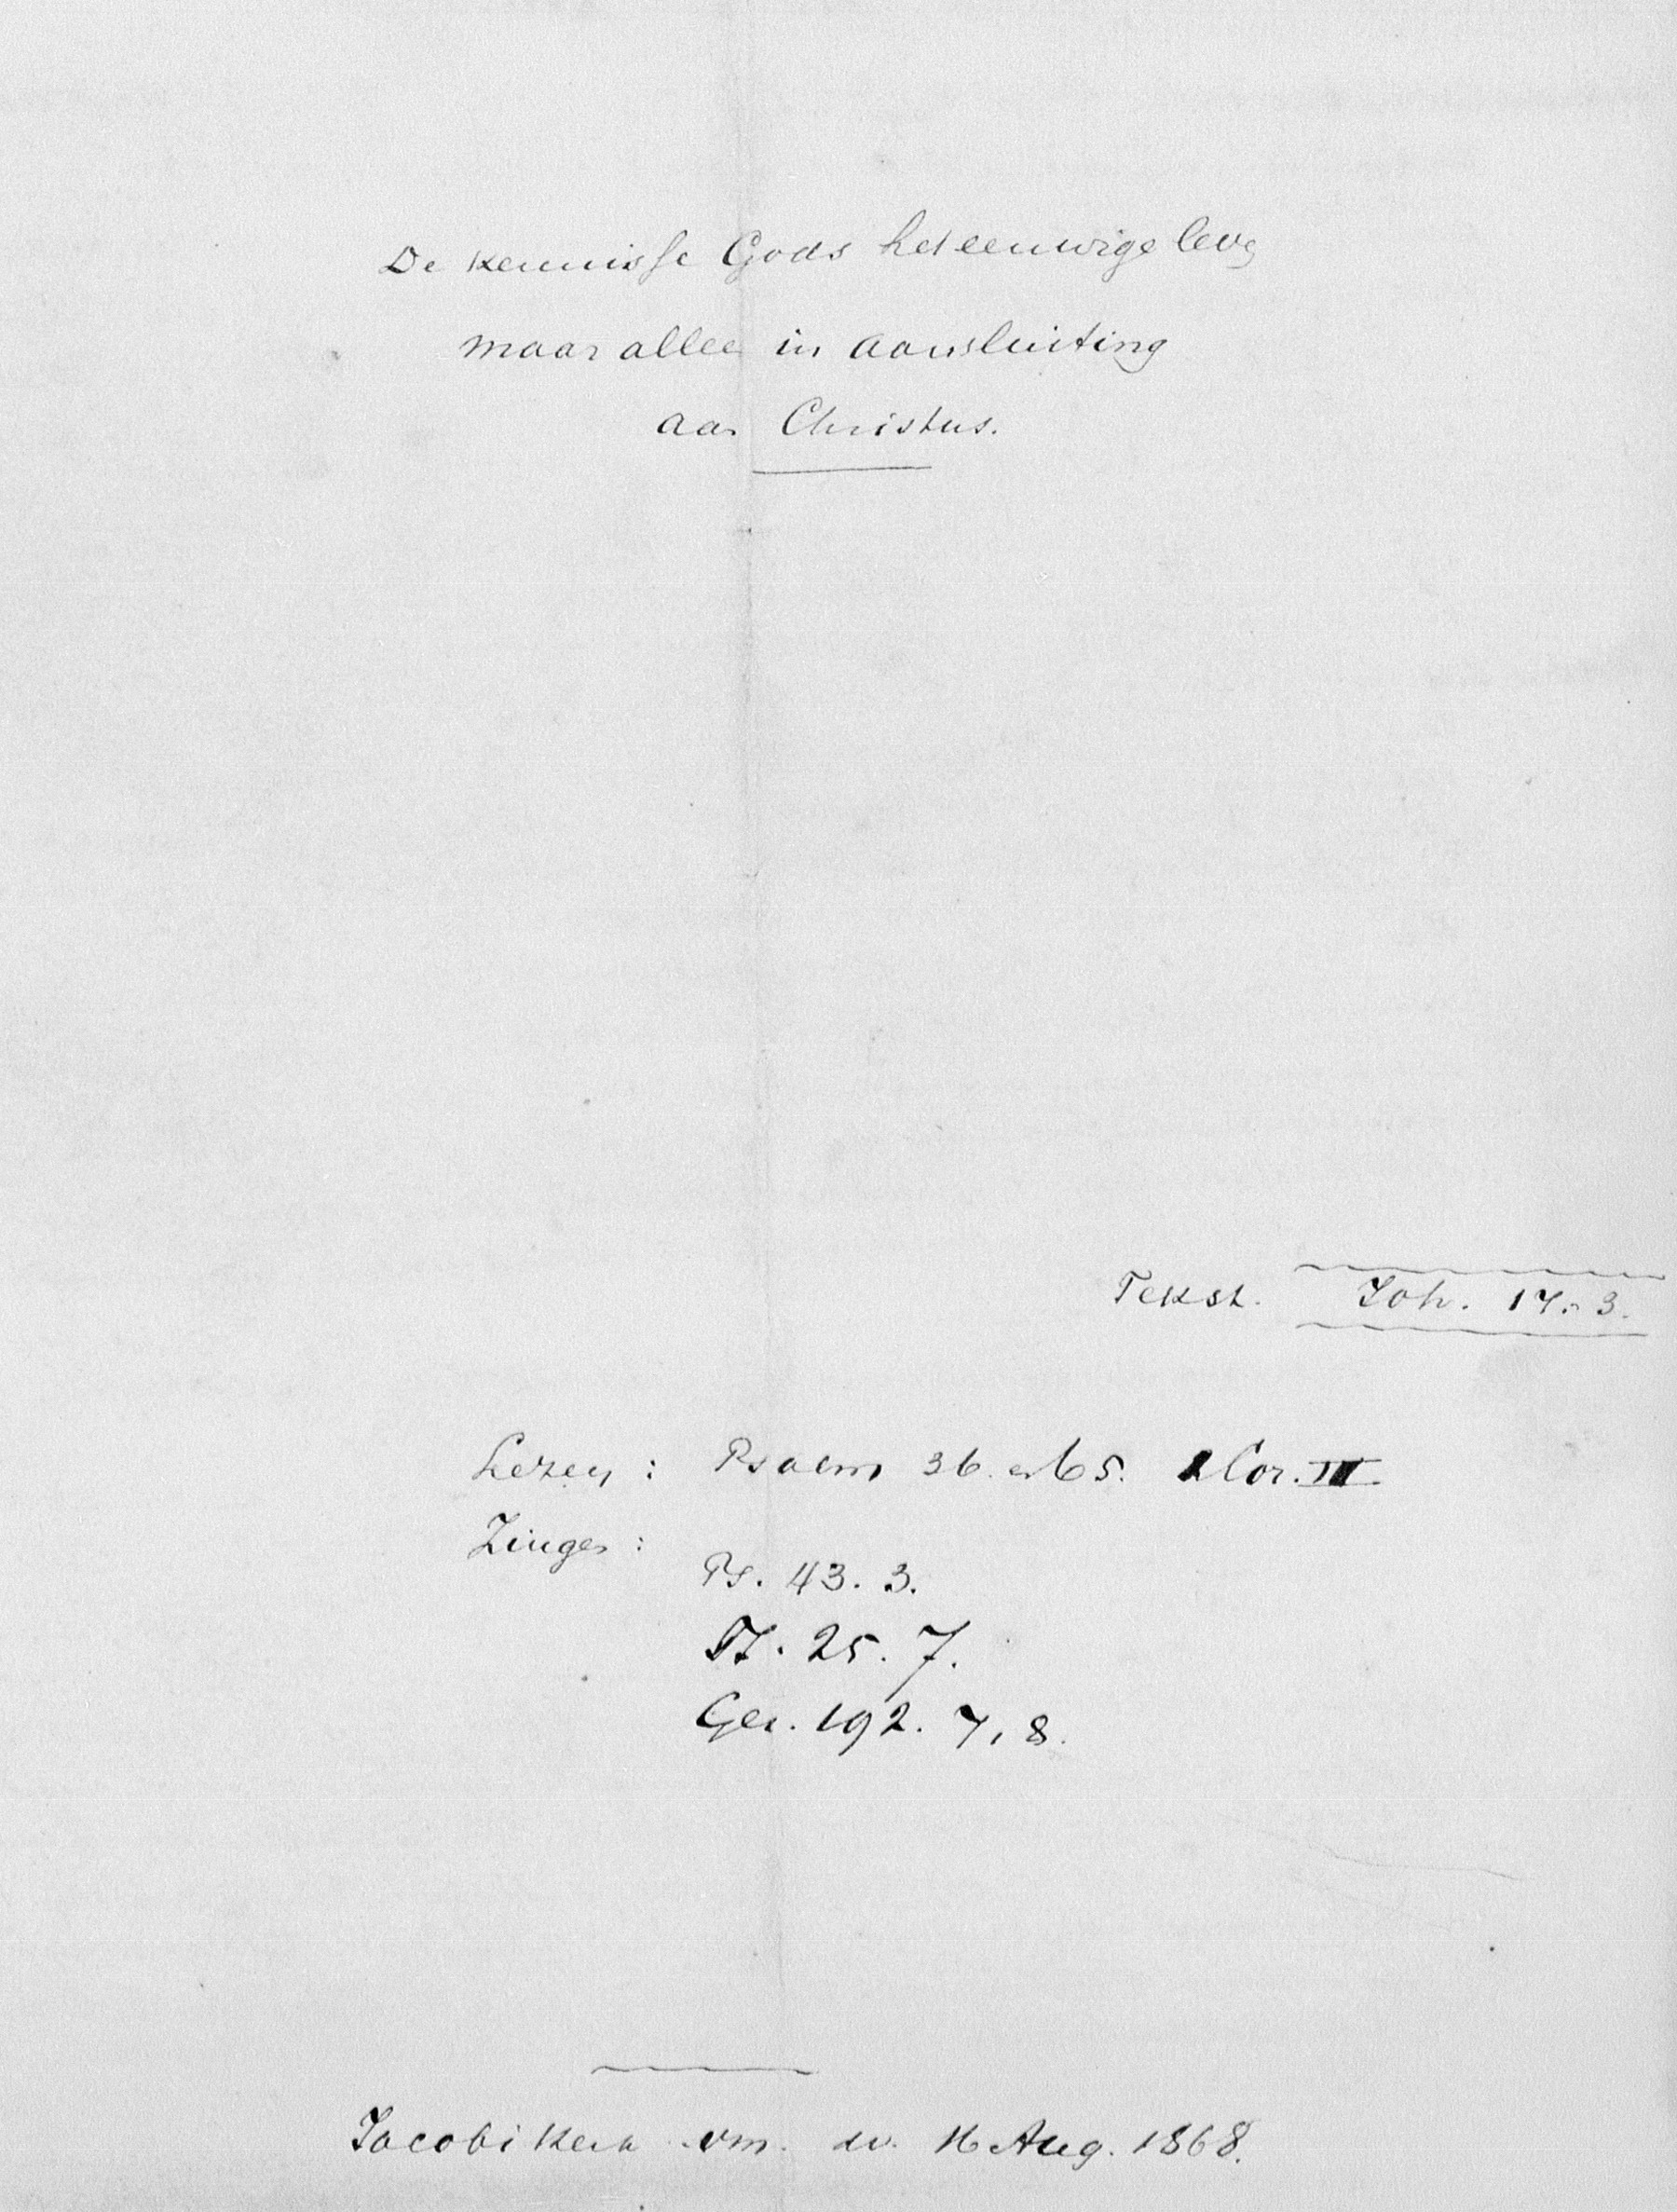 De kennisse Gods het eeuwige leven
maar alleen in aansluiting
aan Christus.
Tekst. Joh. 17:3.
Lezen: Psalm 36. en 65. Cor. III
Zingen:
Ps. 43. 3.
Ps. 25. 7.
Gez. 192. 7, 8.
Jacobi Kerk vm. 16 Aug. 1868.